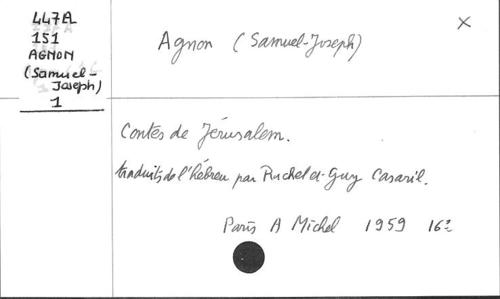 447A
151
AGNON
(Samuel-
Joseph)
1
Agnon (Samuel-Joseph)
X
Contes de Jérusalem.
traduits de l'hébreu par Rachel et Guy Casaril.
Paris A Michel 1959 16º